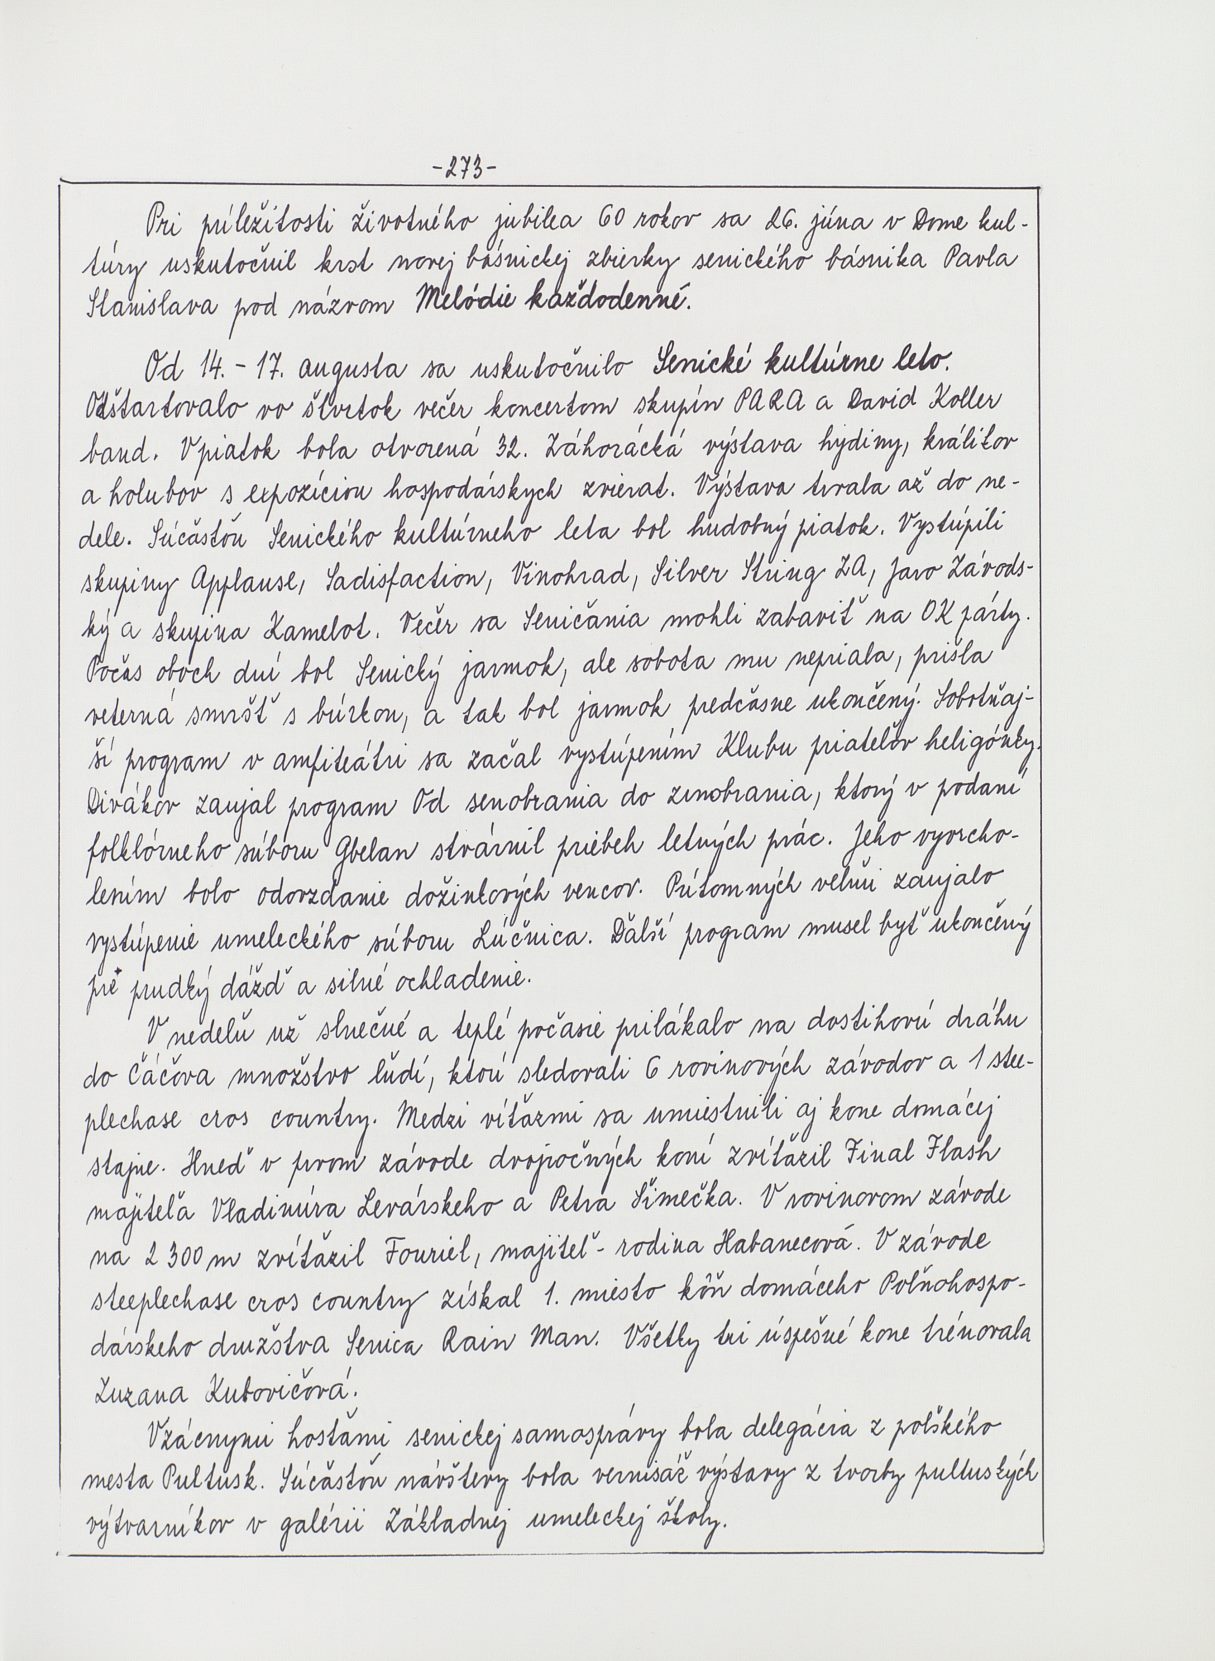 -273-
Pri príležitosti životného jubilea 60 rokov sa 26. júna v Dome kul-
túry uskutočnil krst novej básnickej zbierky senického básnika Pavla
Stanislava pod názvom Melódie každodenné.
Od 14. - 17. augusta sa uskutočnilo Senické kultúrne leto.
Odštartovalo vo štvrtok večer koncertom skupín PARA a David Koller
band. V piatok bola otvorená 32. Záhorácká výstava hydiny, králikov
a holubov s expozíciou hospodárskych zvierat. Výstava trvala až do ne-
dele. Súčasťou Senického kultúrneho leta bol hudobný piatok. Vystúpili
skupiny Applause, Sadisfaction, Vinohrad, Silver String ZA, Jaro Závods-
ký a skupina Kamelot. Večer sa Seničania mohli zabaviť na OK párty.
Počas oboch dní bol Senický jarmok, ale sobota mu nepriala, prišla
veterná smršť s búrkou, a tak bol jarmok predčasne ukončený. Sobotňaj-
ší program v amfiteátri sa začal vystúpením Klubu priateľov heligónky.
Divákov zaujal program Od senobrania do zmobrania, ktorý v podaní
folklórneho súboru Gbelan stvárnil priebeh letných prác. Jeho vyvrcho-
lením bolo odovzdanie dožinkových vencov. Prítomných veľmi zaujalo
vystúpenie umeleckého súboru Lúčnica. Ďalší program musel byť ukončený
pre prudký dážď a silné ochladenie.
V nedeľu už slnečné a teplé počasie prilákalo na dostihovú dráhu
do Čáčova množstvo ľudí, ktoú sledovali 6 rovinových závodov a 1 stee-
plechase cros country. Medzi víťazmi sa umiestnili aj kone domácej
stajne. Hneď v prvom závode dvojročných koní zvíťazil Final Flash
majiteľa Vladimíra Levárskeho a Petra Šimečka. V rovinovom závode
na 2 300 m zvíťazil Fouriel, majiteľ - rodina Habanecová. V závode
steeplechase cros country získal 1. miesto kôň domáceho Poľnohospo-
dárskeho družstva Senica Rain Man. Všetky tri úspešné kone trénovala
Zuzana Kubovičová.
Vzácnymi hosťami senickej samosprávy bola delegácia z poľského
mesta Pultusk. Súčasťou návštevy bola vernisáž výstavy z tvorby pultuských
výtvarníkov v galérii Základnej umeleckej školy.